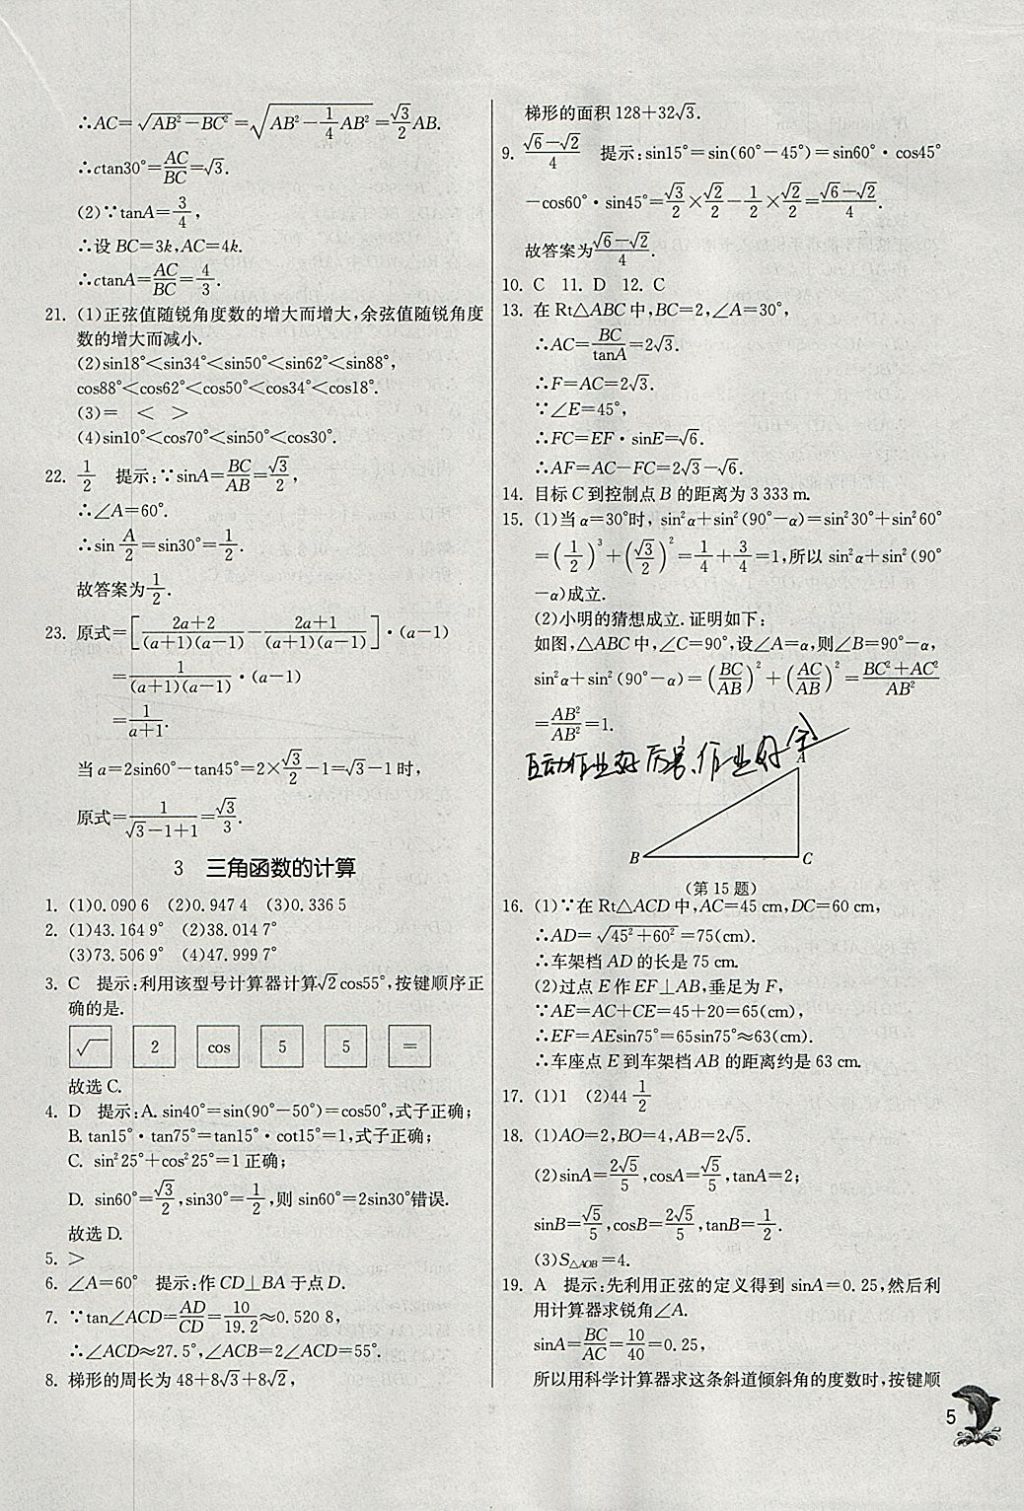 ∴AC=√(AB²−BC²)=√(AB²−1/4AB²)=√3/2AB.
∴ctan30°=AC/BC=√3.
(2)∵tanA=3/4,
∴设BC=3k,AC=4k.
∴ctanA=AC/BC=4/3.
21. (1)正弦值随锐角度数的增大而增大,余弦值随锐角度
数的增大而减小.
(2)sin18°<sin34°<sin50°<sin62°<sin88°,
cos88°<cos62°<cos50°<cos34°<cos18°.
(3)= < >
(4)sin10°<cos70°<sin50°<cos30°.
22. 1/2 提示:∵sinA=BC/AB=√3/2,
∴∠A=60°.
∴sin A/2=sin30°=1/2.
故答案为1/2.
23. 原式=[(2a+2)/((a+1)(a−1))−(2a+1)/((a+1)(a−1))]·(a−1)
=1/((a+1)(a−1))·(a−1)
=1/(a+1).
当a=2sin60°−tan45°=2×√3/2−1=√3−1时,
原式=1/(√3−1+1)=√3/3.
3 三角函数的计算
1. (1)0.090 6 (2)0.947 4 (3)0.336 5
2. (1)43.164 9° (2)38.014 7°
(3)73.506 9° (4)47.999 7°
3. C 提示:利用该型号计算器计算√2cos55°,按键顺序正
确的是.
√ 2 cos 5 5 =
故选C.
4. D 提示:A. sin40°=sin(90°−50°)=cos50°,式子正确;
B. tan15°·tan75°=tan15°·cot15°=1,式子正确;
C. sin²25°+cos²25°=1正确;
D. sin60°=√3/2,sin30°=1/2,则sin60°=2sin30°错误.
故选D.
5. >
6. ∠A=60° 提示:作CD⊥BA于点D.
7. ∵tan∠ACD=AD/CD=10/19.2≈0.520 8,
∴∠ACD≈27.5°,∠ACB=2∠ACD=55°.
8. 梯形的周长为48+8√3+8√2,
梯形的面积128+32√3.
9. (√6−√2)/4 提示:sin15°=sin(60°−45°)=sin60°·cos45°
−cos60°·sin45°=√3/2×√2/2−1/2×√2/2=(√6−√2)/4.
故答案为(√6−√2)/4.
10. C 11. D 12. C
13. 在Rt△ABC中,BC=2,∠A=30°,
∴AC=BC/tanA=2√3.
∴F=AC=2√3.
∵∠E=45°,
∴FC=EF·sinE=√6.
∴AF=AC−FC=2√3−√6.
14. 目标C到控制点B的距离为3 333 m.
15. (1)当α=30°时,sin²α+sin²(90°−α)=sin²30°+sin²60°
=(1/2)³+(√3/2)²=1/4+3/4=1,所以sin²α+sin²(90°
−α)成立.
(2)小明的猜想成立.证明如下:
如图,△ABC中,∠C=90°,设∠A=α,则∠B=90°−α,
sin²α+sin²(90°−α)=(BC/AB)²+(AC/AB)²=(BC²+AC²)/AB²
=AB²/AB²=1.
互动作业好厉害、作业好拿
A
B C
(第15题)
16. (1)∵在Rt△ACD中,AC=45 cm,DC=60 cm,
∴AD=√(45²+60²)=75(cm).
∴车架档AD的长是75 cm.
(2)过点E作EF⊥AB,垂足为F,
∵AE=AC+CE=45+20=65(cm),
∴EF=AEsin75°=65sin75°≈63(cm).
∴车座点E到车架档AB的距离约是63 cm.
17. (1)1 (2)44 1/2
18. (1)AO=2,BO=4,AB=2√5.
(2)sinA=2√5/5,cosA=√5/5,tanA=2;
sinB=√5/5,cosB=2√5/5,tanB=1/2.
(3)S△AOB=4.
19. A 提示:先利用正弦的定义得到sinA=0.25,然后利
用计算器求锐角∠A.
sinA=BC/AC=10/40=0.25,
所以用科学计算器求这条斜道倾斜角的度数时,按键顺
5